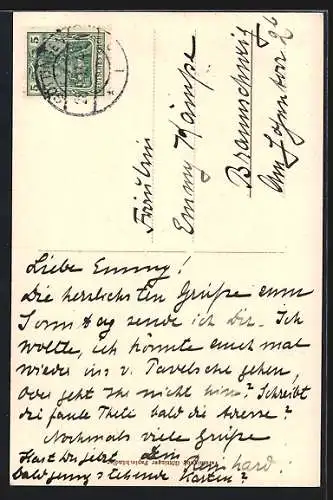 5
5
Fräulein
Emmy Kämpe
Braunschweig
Am Hohentor 26
Liebe Emmy!
Die herrlichsten Grüße zum
Sonntag sende ich Dir. Ich
wollte, ich könnte auch mal
wieder ins v. Pavelsche gehen,
Oder geht Ihr nicht hin? Schreibt
die faule Thili bald die Adresse?
Nochmals viele Grüße
Hast Du jetzt Dein
bald lebende Karten?